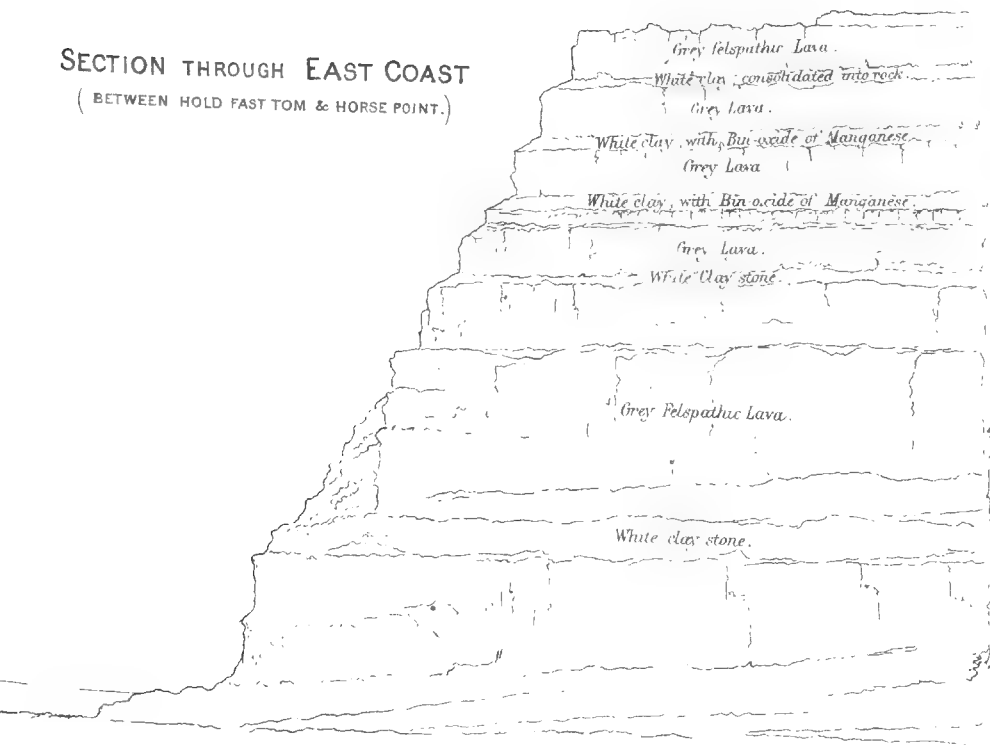 SECTION THROUGH EAST COAST
( BETWEEN HOLD FAST TOM & HORSE POINT.)
Grey felspathic Lava.
White clay; consolidated into rock.
Grey Lava.
White clay, with, Bin-oxide of Manganese
Grey Lava
White clay, with Bin-oxide of Manganese.
Grey Lava.
White Clay stone.
Grey Felspathic Lava.
White clay stone.